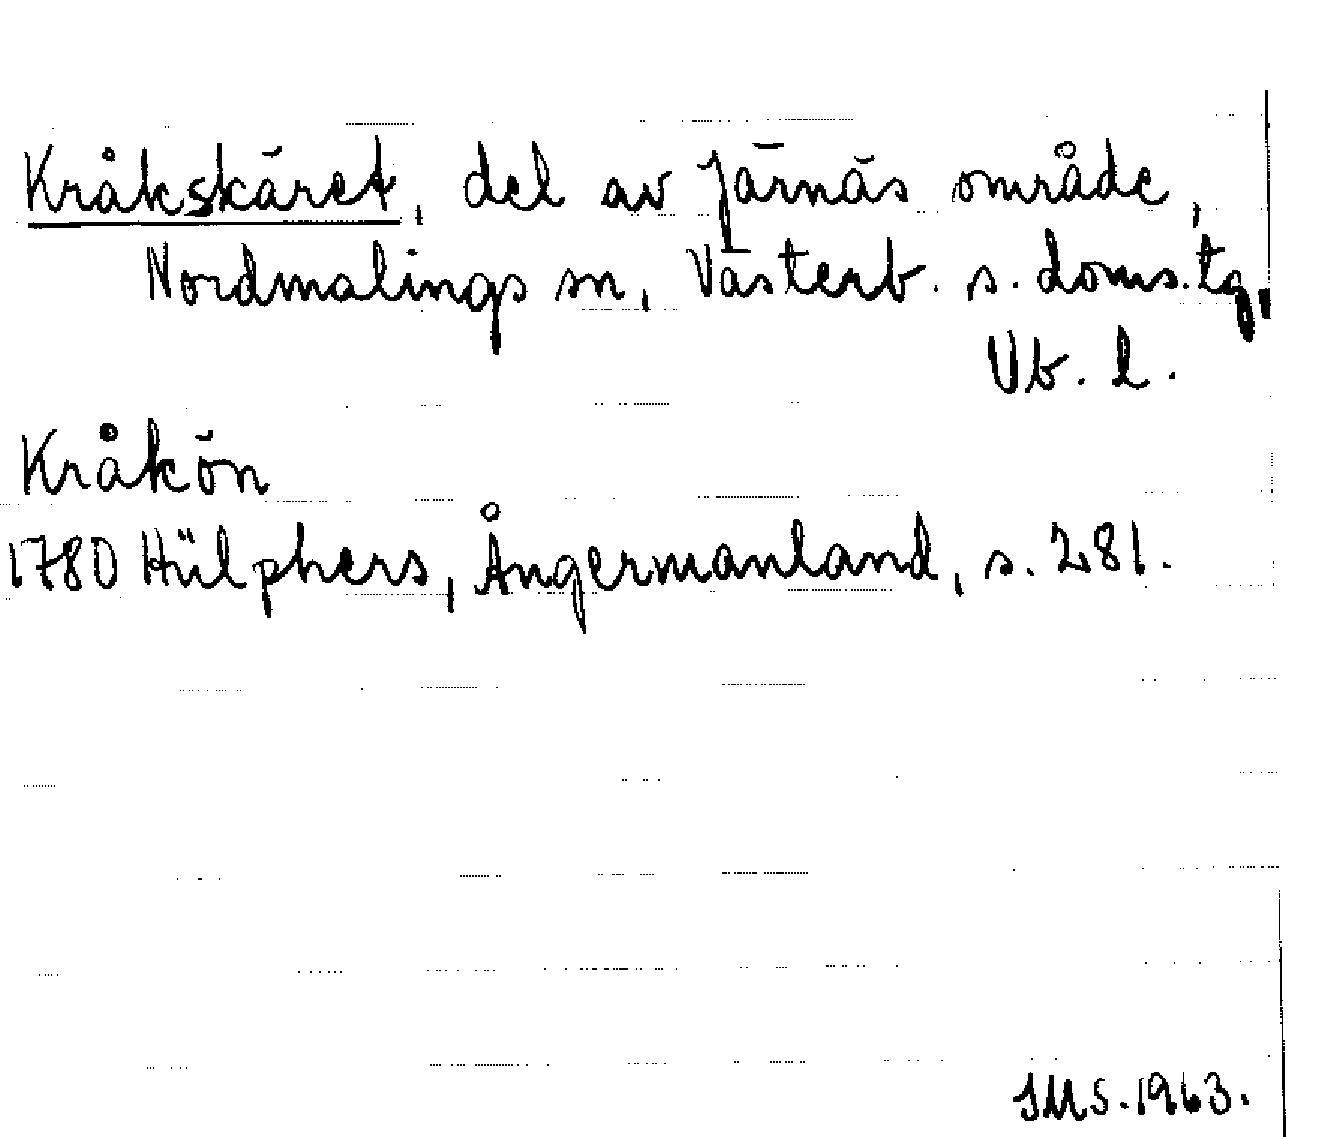 Kråkskäret, del av Järnäs område,
Nordmalings sn, Västerb. s. doms.tg,
Vb. l.
Kråkön
1780 Hülphers, Ångermanland, s. 281.
SMS. 1963.